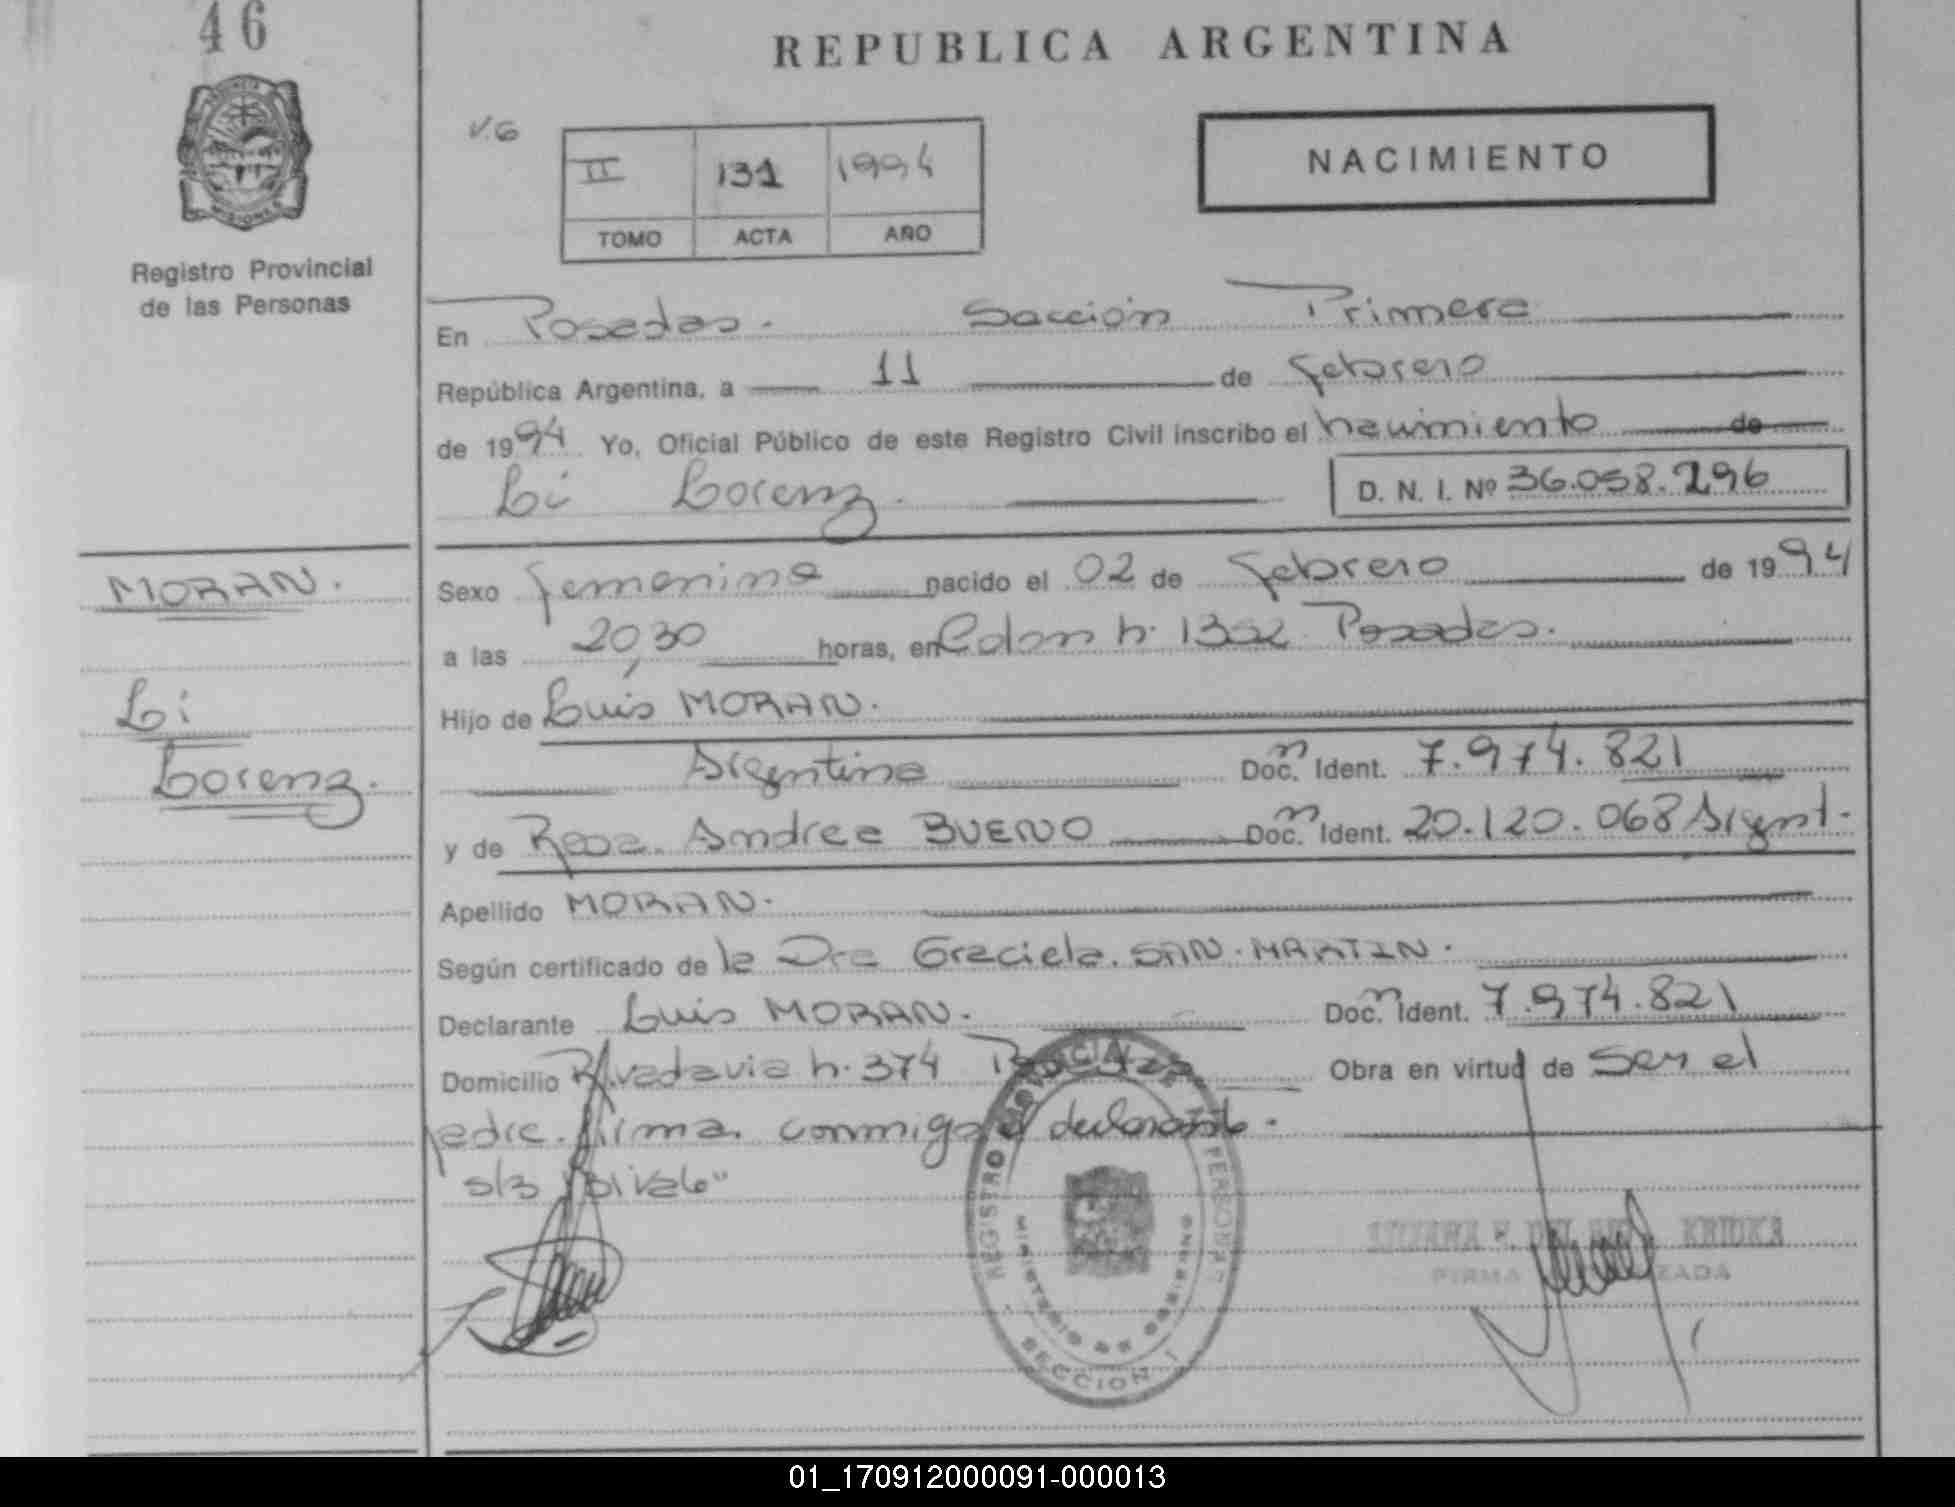 46
REPUBLICA ARGENTINA
PROVINCIA
MISIONES
V.G
II 131 1994
TOMO ACTA AÑO
NACIMIENTO
Registro Provincial
de las Personas
En Posadas. Sección Primera
República Argentina, a 11 de febrero
de 1994 Yo, Oficial Público de este Registro Civil inscribo el nacimiento de
Li Lorenz. D. N. I. Nº 36.058.296
MORAN.
Li
Lorenz.
Sexo femenino nacido el 02 de febrero de 1994
a las 20,30 horas, en Colon n. 1352 Posadas.
Hijo de Luis MORAN.
Argentino Docn. Ident. 7.974.821
y de Rosa Andrea BUENO Docn. Ident. 20.120.068 Argent.
Apellido MORAN.
Según certificado de la Dra Graciela SAN MARTIN.
Declarante Luis MORAN. Docn. Ident. 7.974.821
Domicilio Rivadavia n. 374 Posadas Obra en virtud de ser el
padre. firma conmigo el declarante.
s/3
REGISTRO PROVINCIAL DE LAS PERSONAS
MINISTERIO DE GOBIERNO
SECCION 1
KRIUKA
FIRMA AUTORIZADA
01_170912000091-000013